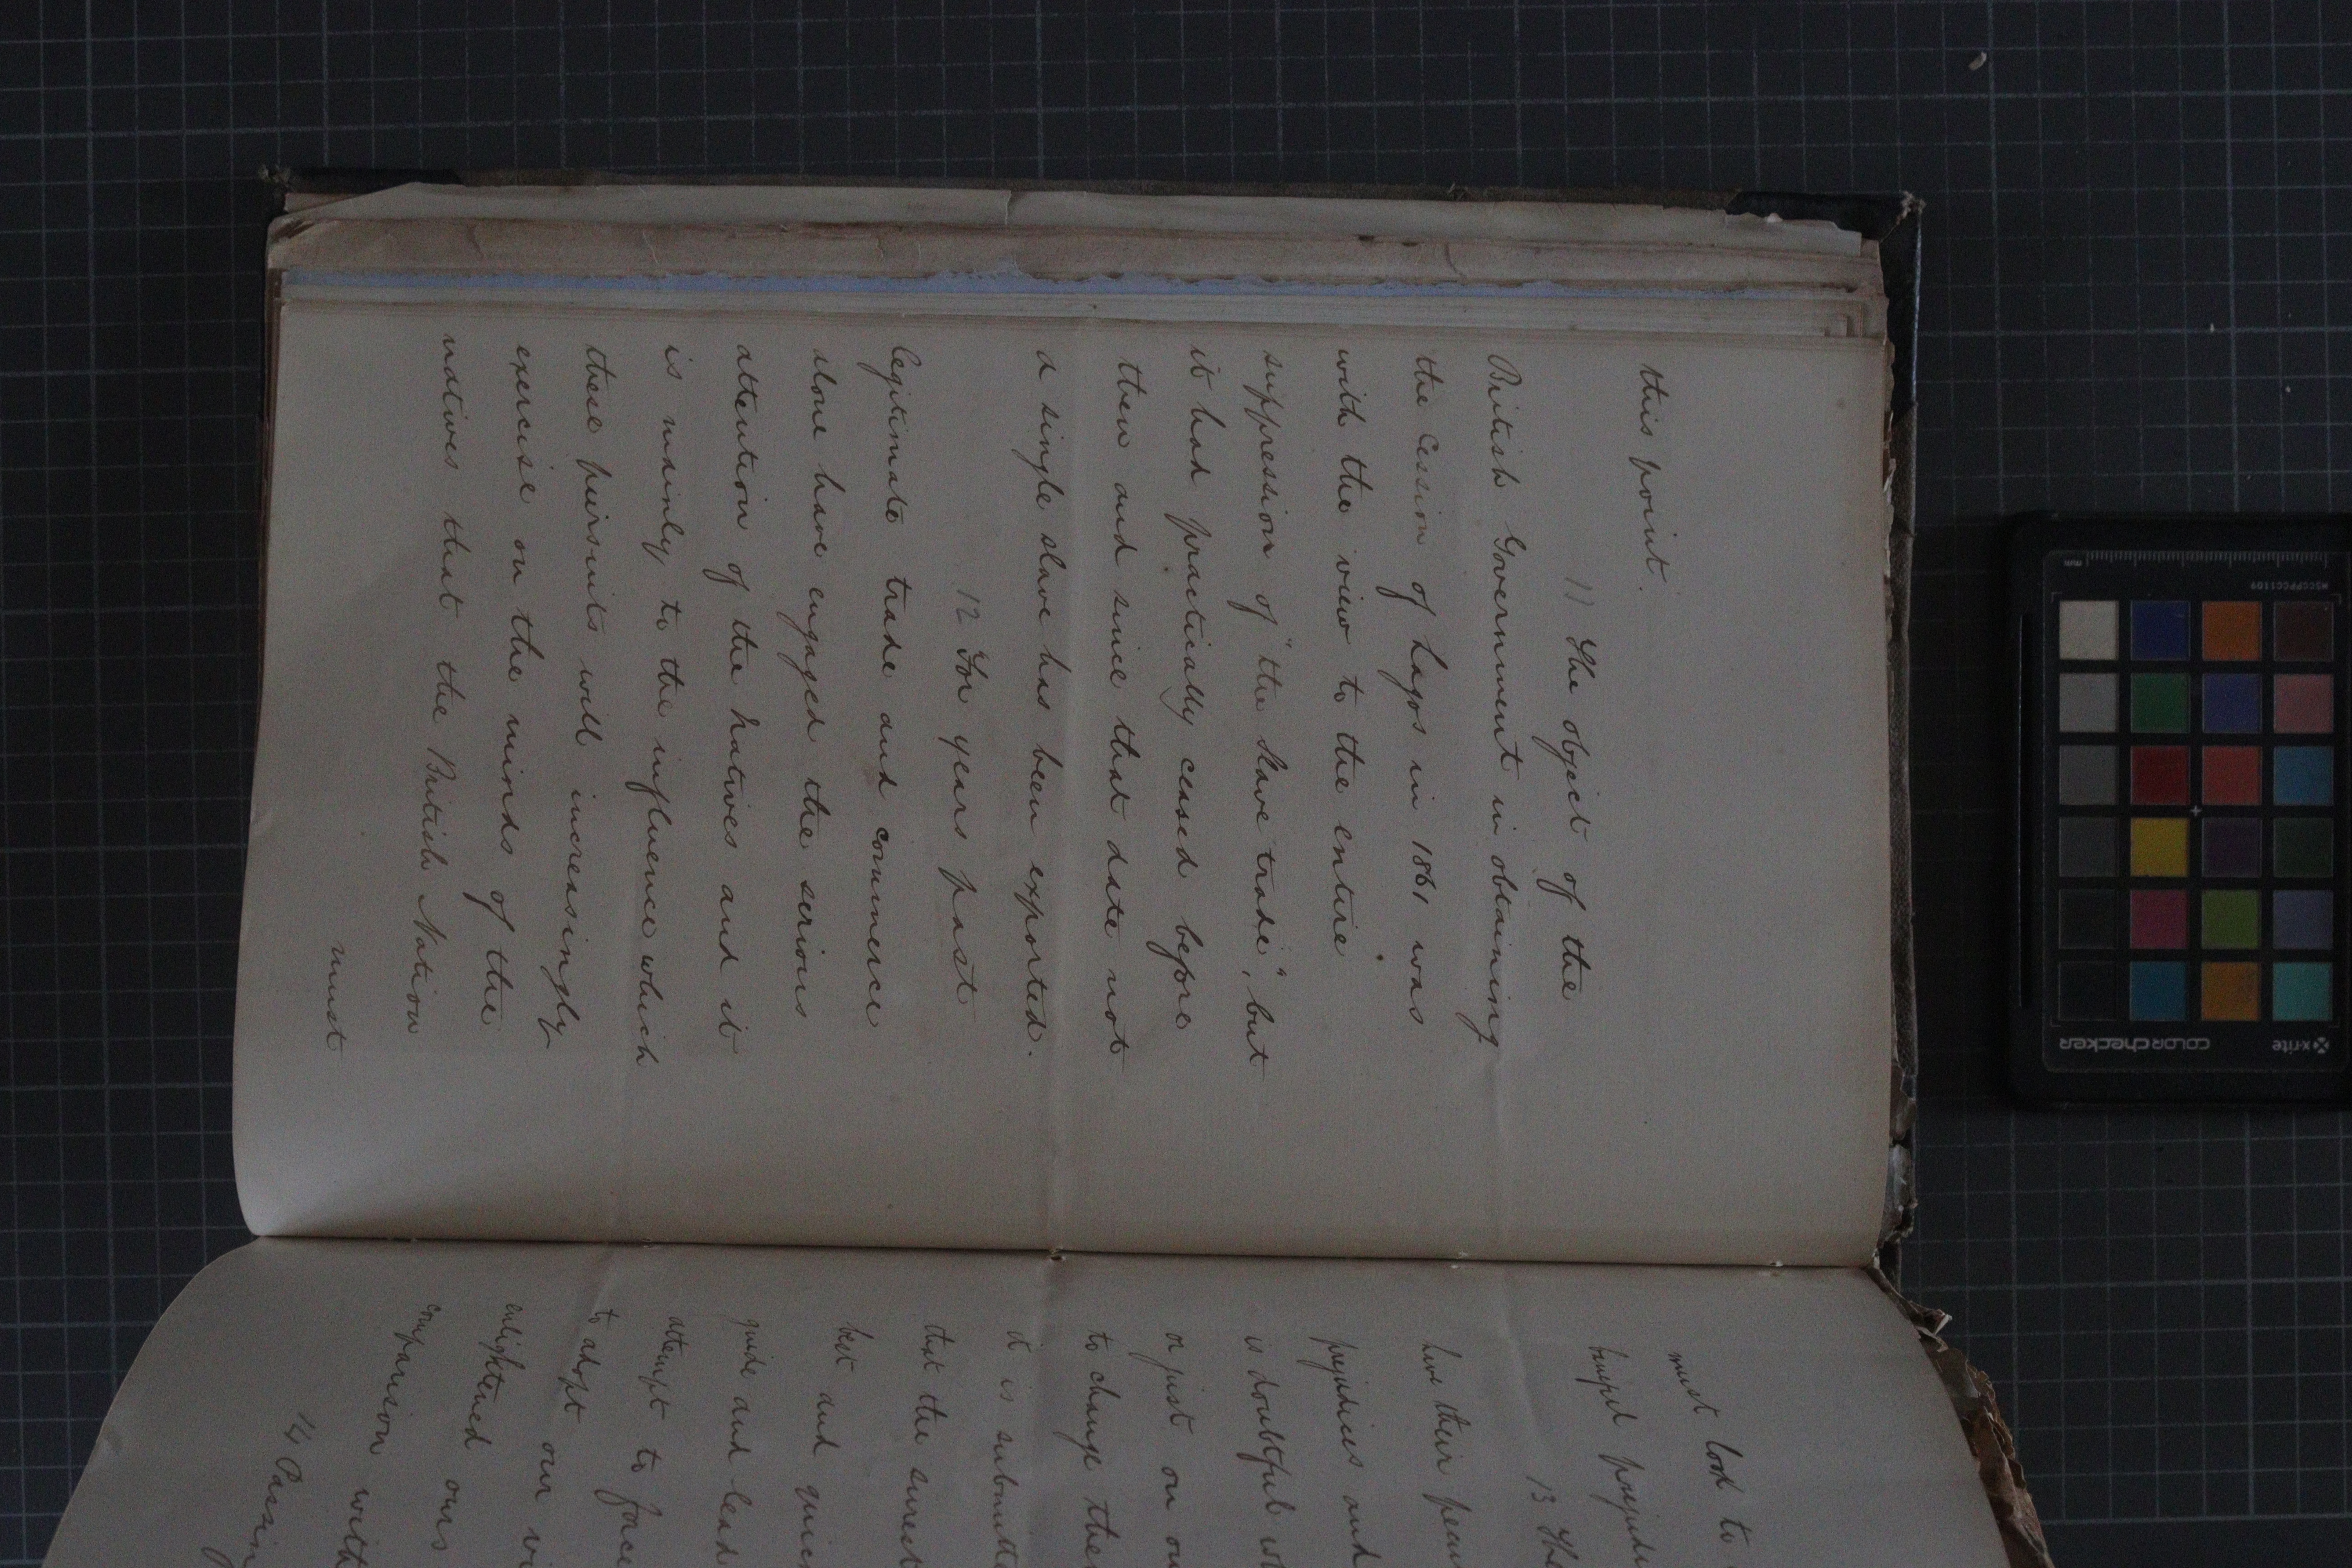 this point.
11 The object of the
British Government in obtaining
the Cession of Lagos in 1861 was
with the view to the entire
suppression of "the Slave trade", but
it had practically ceased before
then and since that date not
a single slave has been exported.
12 For years past
legitimate trade and commerce
alone have engaged the serious
attention of the natives and it
is mainly to the influence which
these pursuits will increasingly
exercise on the minds of the
natives that the British Nation
must
must look to
prejudi
13 The
have their
prejudices and
is doubtful wh
or just on ou
to change thei
it is submitte
that the surest
best and quic
guide and lead
attempt to force
to adopt our vi
enlightened ours
comparison with
14 Passin
mm
MSCCPPCC1109
x-rite
colorchecker